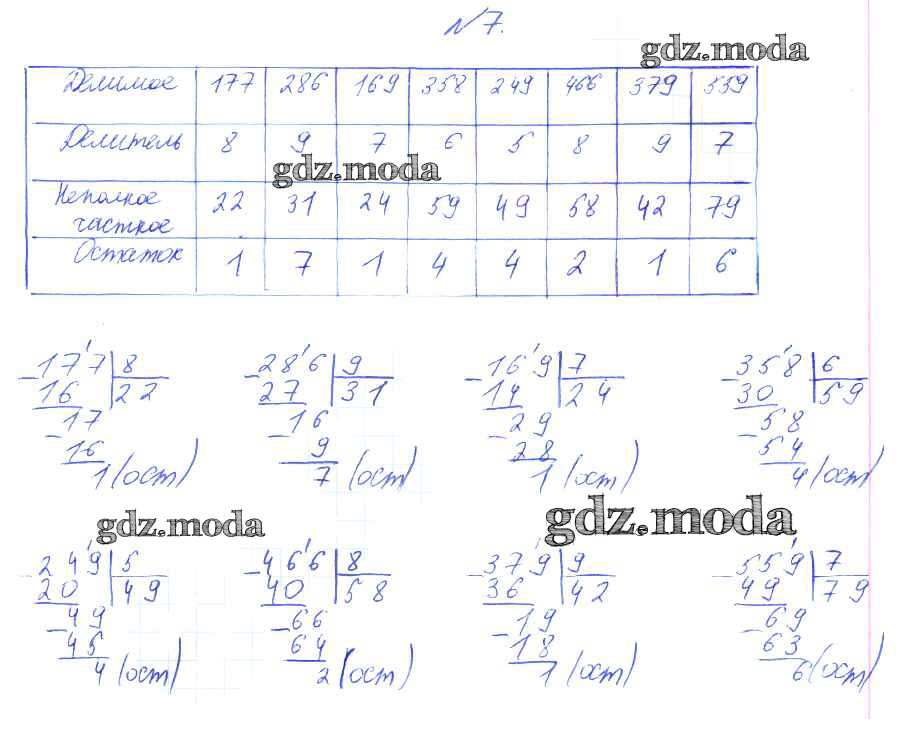 №7.
gdz.moda
Делимое 177 286 169 358 249 466 379 559
Делитель 8 9 7 6 5 8 9 7
gdz.moda
Неполное 22 31 24 59 49 58 42 79
частное
Остаток 1 7 1 4 4 2 1 6
177 8 286 9 169 7 358 6
16 22 27 31 14 24 30 59
17 16 29 58
16 9 28 54
1 (ост) 7 (ост) 1 (ост) 4 (ост)
gdz.moda gdz.moda
249 5 466 8 379 9 559 7
20 49 40 58 36 42 49 79
49 66 19 69
45 64 18 63
4 (ост) 2 (ост) 1 (ост) 6 (ост)